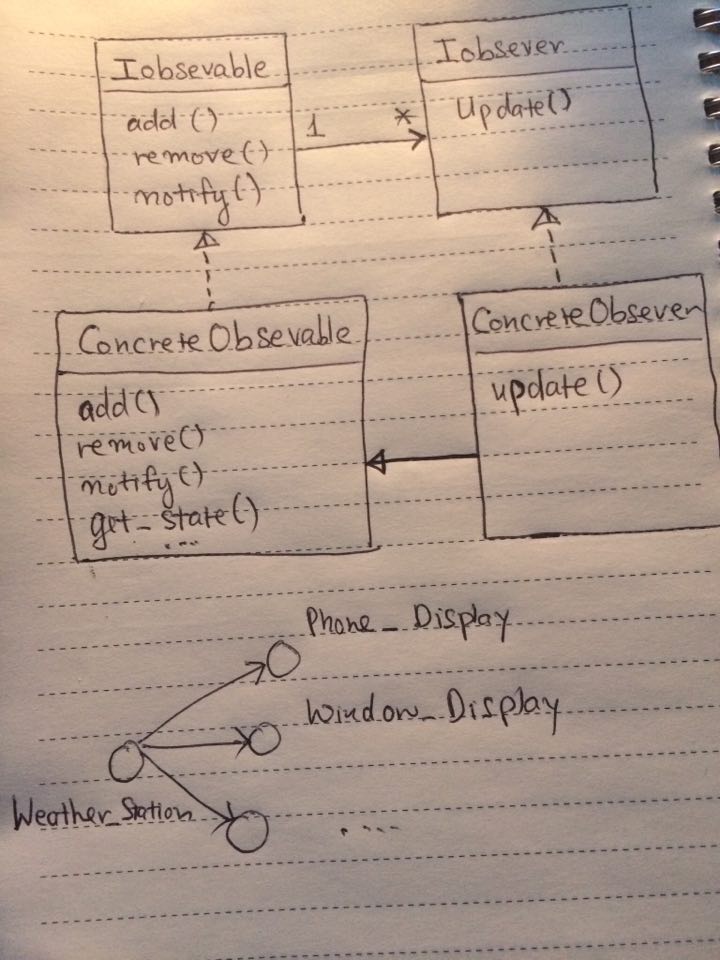 Iobsevable
add()
remove()
notify()
1
*
Iobsever
update()
ConcreteObsevable
add()
remove()
notify()
get_state()
....
ConcreteObsever
update()
Phone_Display
Window_Display
Weather_Station
....